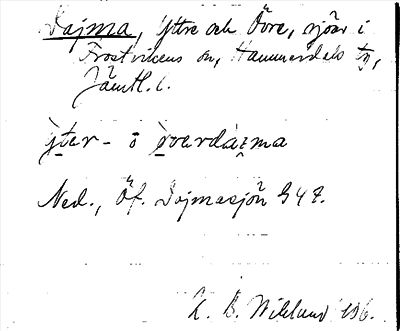 Dajma, Yttre och Övre, sjöar i
Frostvikens sn, Hammerdals tg,
Jämtl. l.
y̱ter- o̊ ö̱verdaima
Ned., Öf. Dajmasjön G47.
K. B. Wiklund